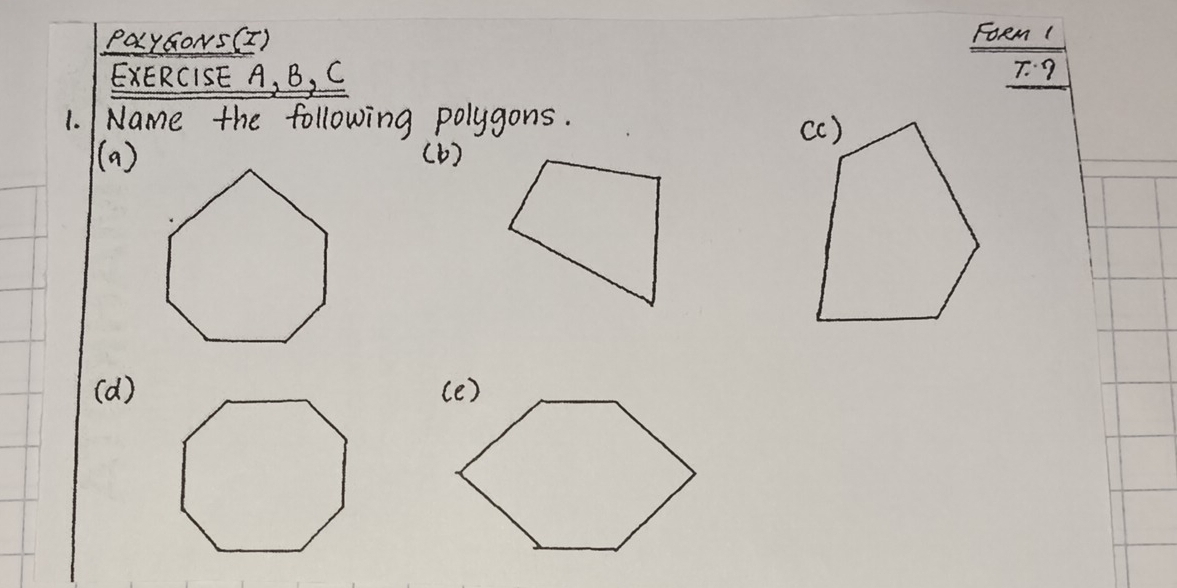 POLYGONS(I)
FORM 1
EXERCISE A, B, C
T.9
1. Name the following polygons.
(a)
(b)
(c)
(d)
(e)